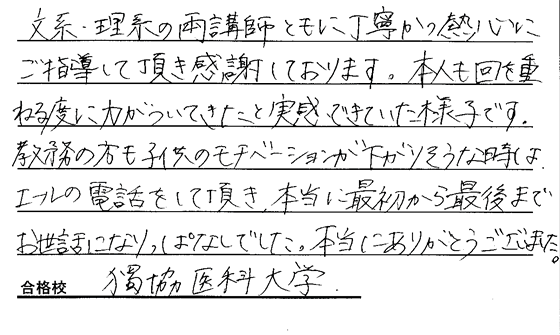 文系・理系の両講師ともに丁寧かつ熱心に
ご指導して頂き感謝しております。本人も回を重
ねる度に力がついてきたこと実感できていた様子です。
教務の方も子供のモチベーションが下がりそうな時は、
エールの電話をして頂き、本当に最初から最後まで
お世話になりっぱなしでした。本当にありがとうございました。
合格校 獨協医科大学.